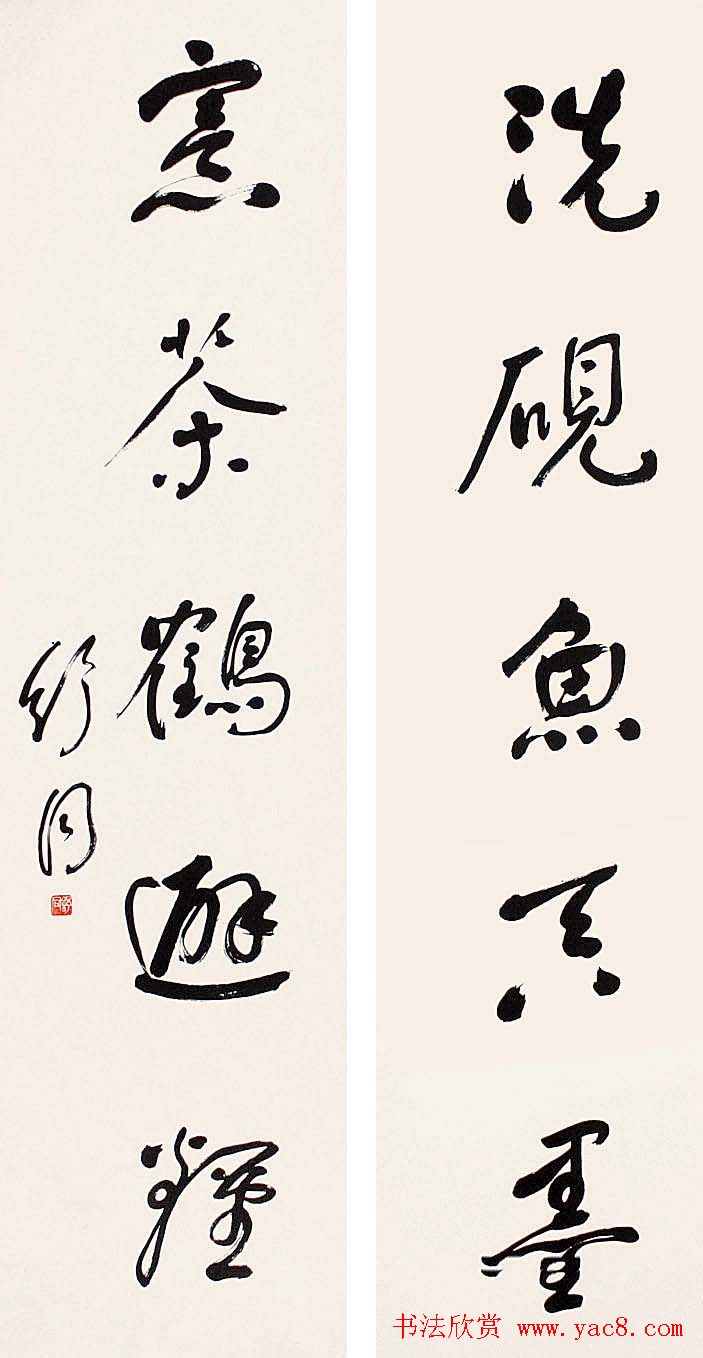 洗硯魚吞墨
烹茶鶴避煙
舒同
舒同
书法欣赏 www.yac8.com